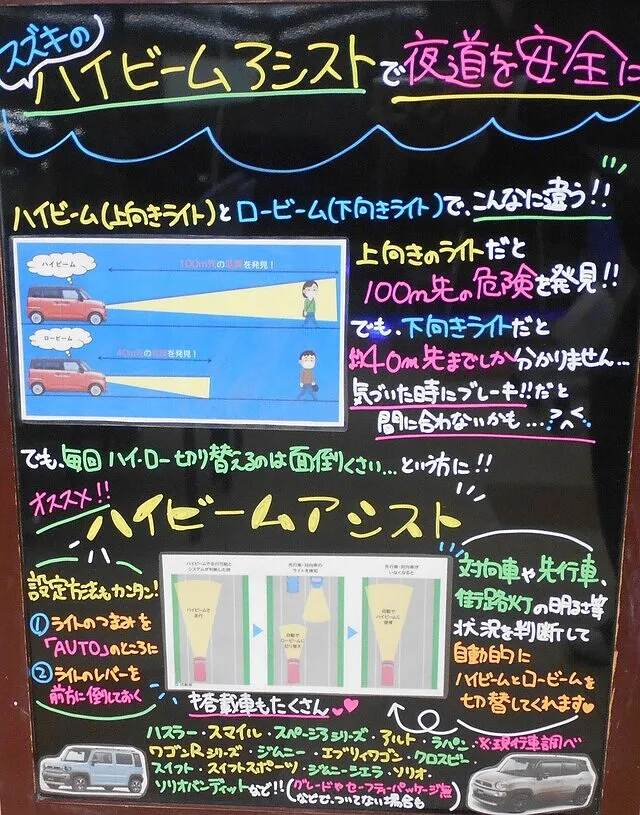 スズキの
ハイビームアシストで夜道を安全に
ハイビーム(上向きライト)とロービーム(下向きライト)で、こんなに違う!!
ハイビーム
100m先の危険を発見!
ロービーム
40m先の危険を発見!
上向きのライトだと
100m先の危険を発見!!
でも、下向きライトだと
約40m先までしか分かりません…
気づいた時にブレーキ!!だと
間に合わないかも…
でも、毎回 ハイ・ロー切り替えるのは面倒くさい…という方に!!
オススメ!!
ハイビームアシスト
設定方法もカンタン!
① ライトのつまみを
「AUTO」のところに
② ライトのレバーを
前方に倒しておく
ハイビームで走行可能と
システムが判断した時
ハイビームで
走行
先行車・対向車の
ライトを検知
自動で
ロービームに
切り替え
先行車・対向車が
いなくなると
自動で
ハイビームに
復帰
対向車や先行車、
街路灯の明るさ等
状況を判断して
自動的に
ハイビームとロービームを
切り替してくれます♥
搭載車もたくさん♥♥
※現行車調べ
ハスラー・スマイル・スペーシアシリーズ・アルト・ラパン・
ワゴンRシリーズ・ジムニー・エブリィワゴン・クロスビー
スイフト・スイフトスポーツ・ジムニーシエラ・ソリオ・
ソリオバンディットなど!!(グレードやセーフティーパッケージ無
などで、ついてない場合も)